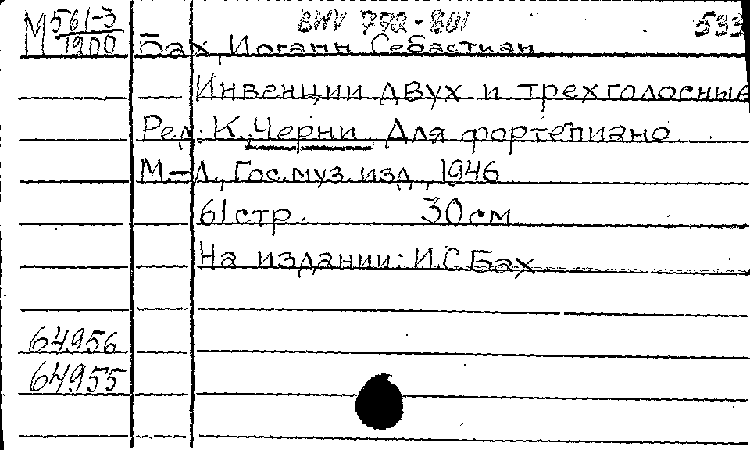 М 561-3 BWV 772-801 533
М 1900 Бах, Иоганн Себастиан
Инвенции двух и трехголосные
Ред. К. Черни. Для фортепиано
М.-Л., Гос. муз. изд., 1946
61 стр. 30 см
На издании: И.С. Бах
64956
64955